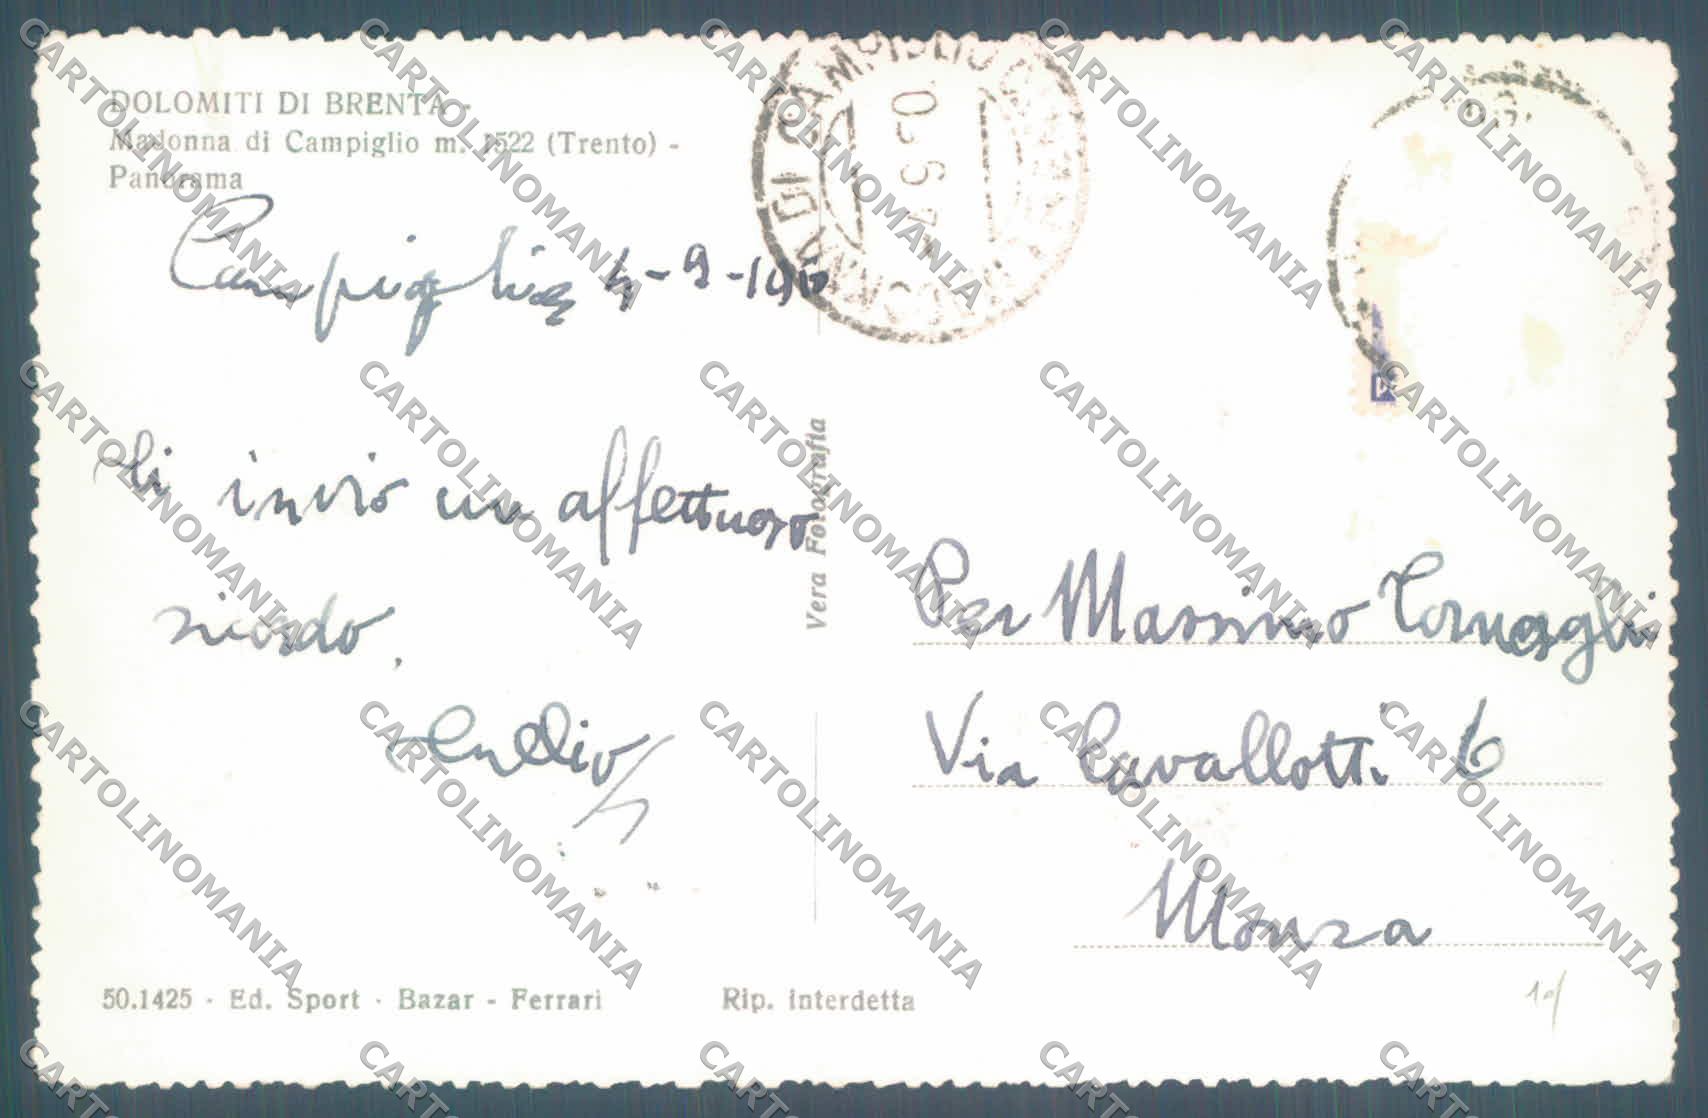 DOLOMITI DI BRENTA -
Madonna di Campiglio m. 1522 (Trento) -
Panorama
DI CAMPIGLIO
Campiglio 4-9-
Vera Fotografia
ti invio un affettuoso
ricordo.
Per Massimo
Via Cavallotti 6
Monza
50.1425 - Ed. Sport - Bazar - Ferrari
Rip. interdetta
CARTOLINOMANIA